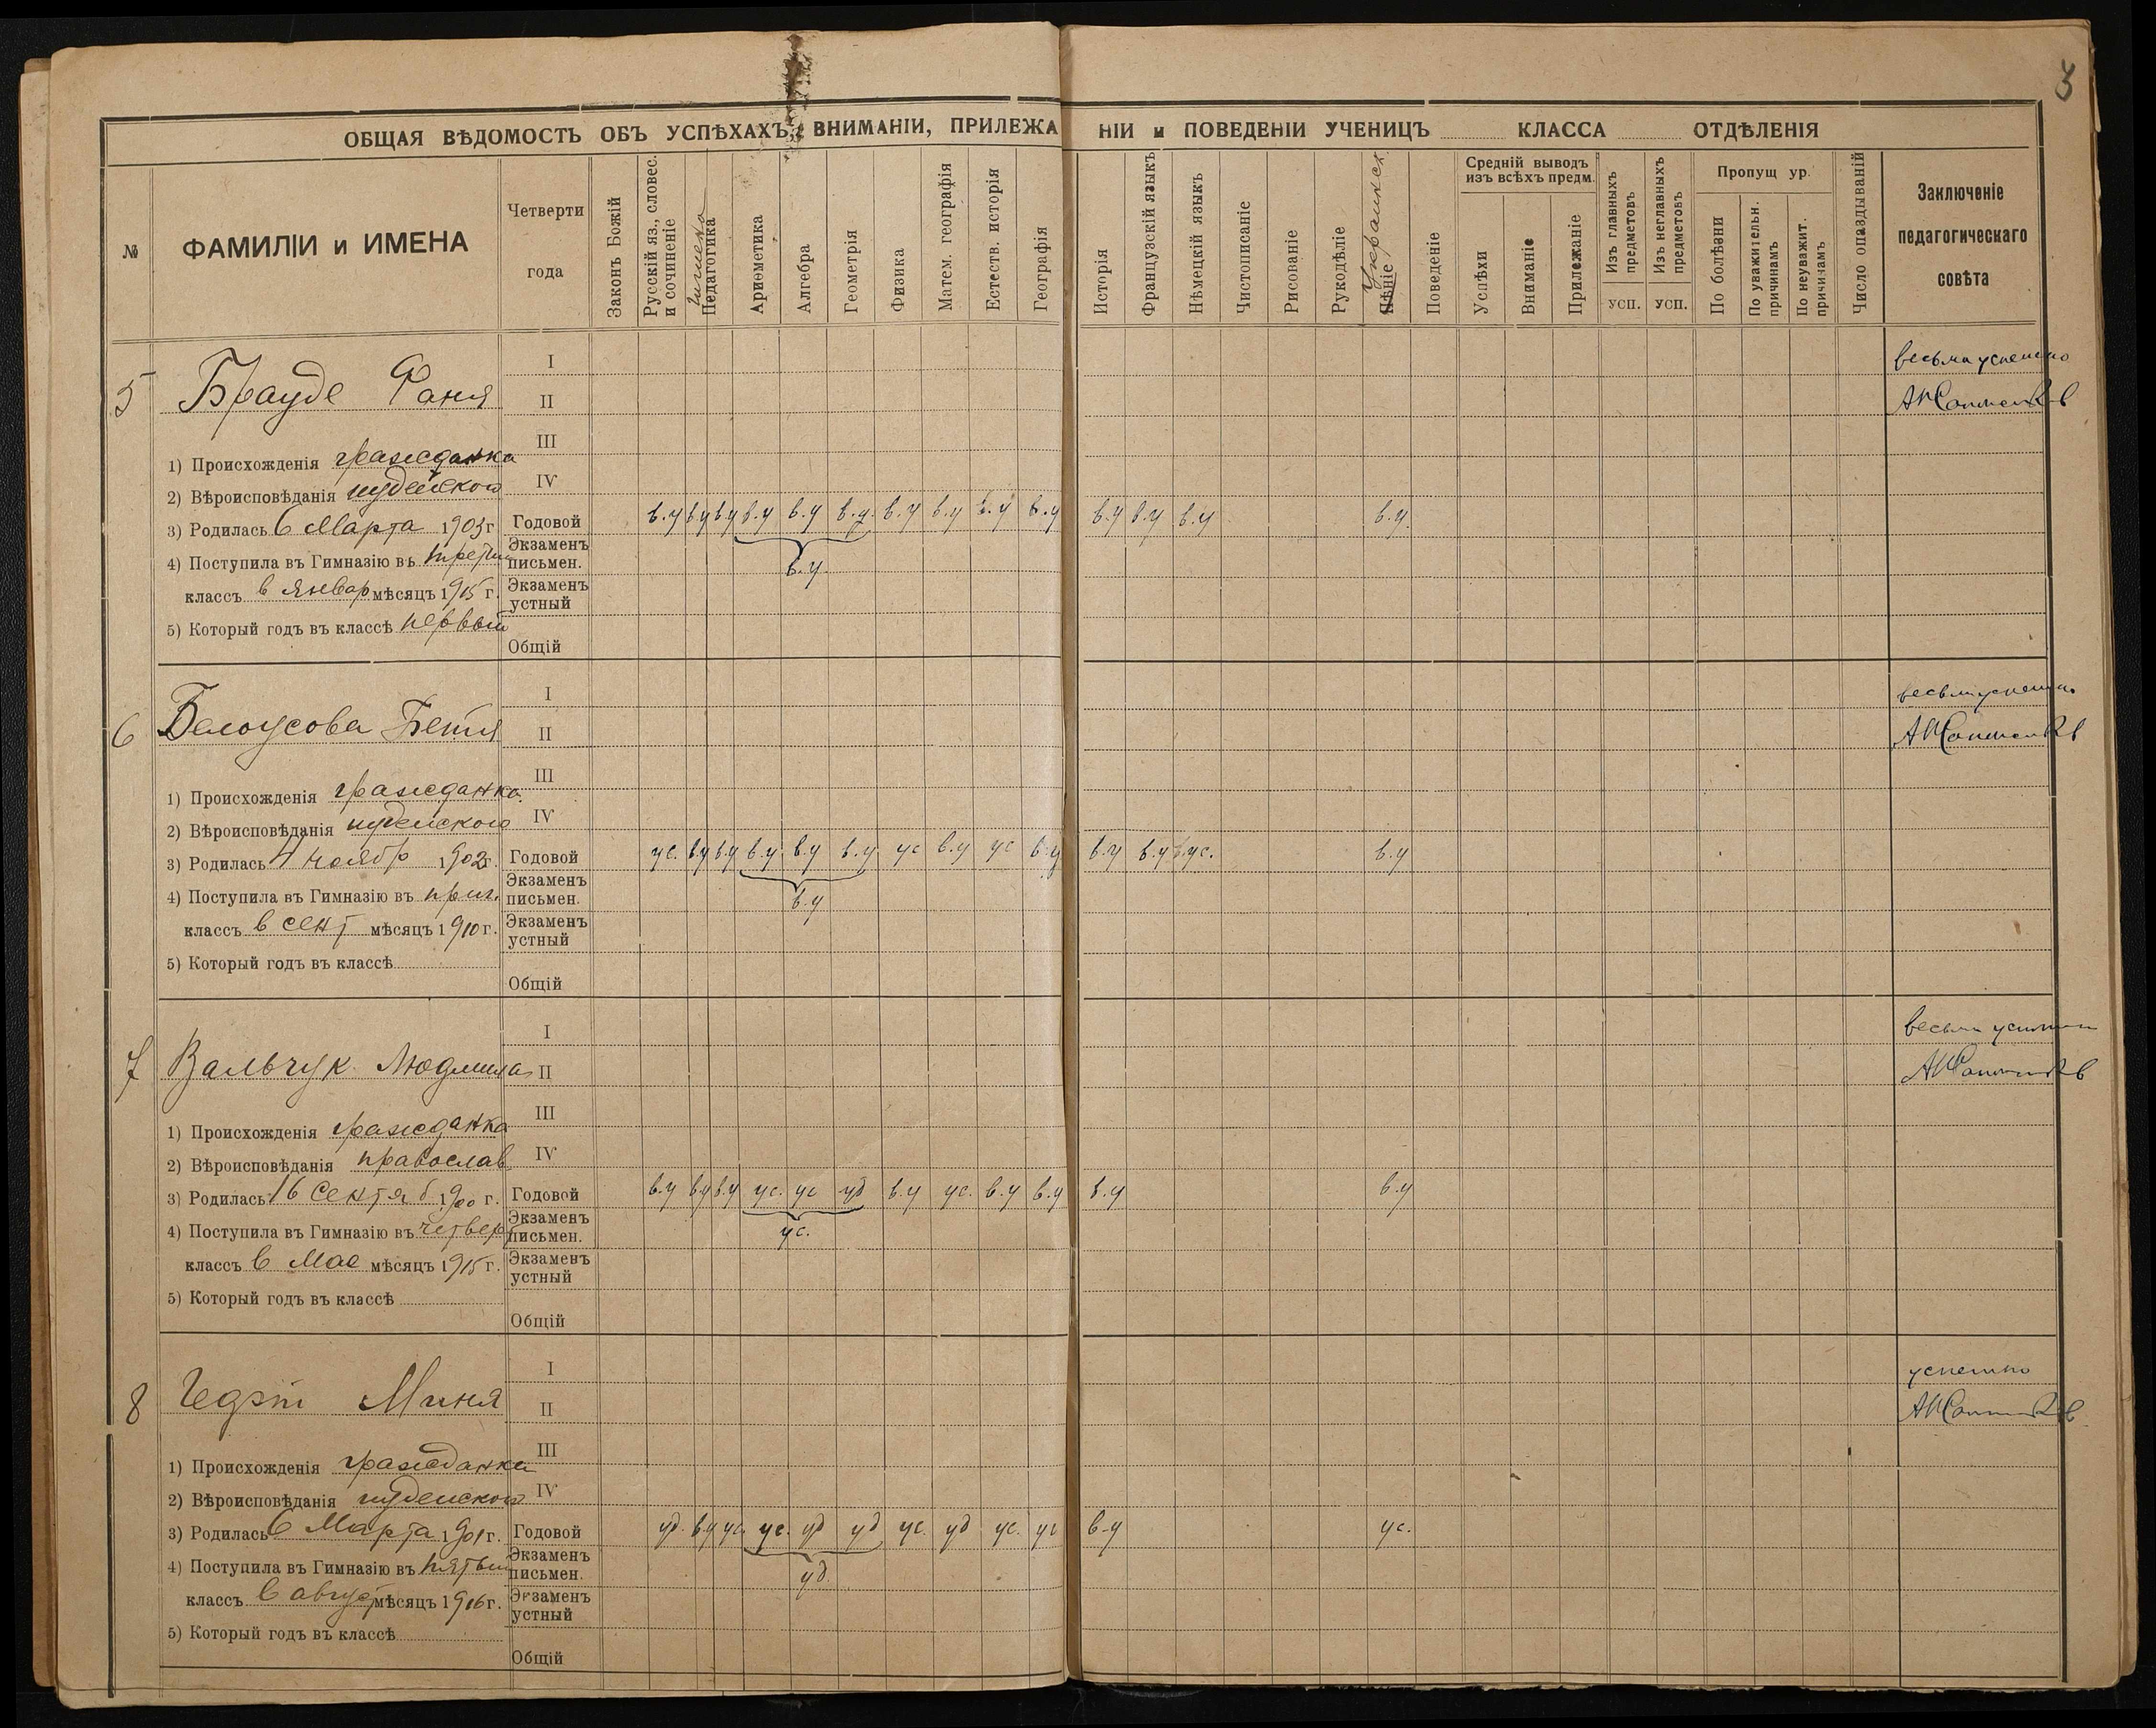 3
ОБЩАЯ ВѢДОМОСТЬ ОБЪ УСПѢХАХЪ, ВНИМАНІИ, ПРИЛЕЖАНІИ и ПОВЕДЕНІИ УЧЕНИЦЪ КЛАССА ОТДѢЛЕНІЯ
№
ФАМИЛІИ и ИМЕНА
Четверти
года
Законъ Божій
Русскій яз., словес.
и сочиненіе
Гигиена
Педагогика
Ариѳметика
Алгебра
Геометрія
Физика
Матем. географія
Естеств. исторія
Географія
Исторія
Французскій языкъ
Нѣмецкій языкъ
Чистописаніе
Рисованіе
Рукодѣліе
Украинск.
Пѣніе
Поведеніе
Средній выводъ
изъ всѣхъ предм.
Успѣхи
Вниманіе
Прилежаніе
Изъ главныхъ
предметовъ
УСП.
Изъ неглавныхъ
предметовъ
УСП.
Пропущ ур.
По болѣзни
По уважительн.
причинамъ
По неуважит.
причинамъ
Число опаздываній
Заключеніе
педагогическаго
совѣта
5 Брауде Фаня
I
II
III
IV
весьма успешно
1) Происхожденія гражданка
2) Вѣроисповѣданія иудейского
3) Родилась 6 Марта 1903 г.
Годовой в.у в.у в.у в.у в.у в.у. в.у в.у в.у в.у в.у в.у в.у в.у.
4) Поступила въ Гимназію въ третий
Экзаменъ
письмен. в.у.
классъ в январ мѣсяцъ 1915 г.
Экзаменъ
устный
5) Который годъ въ классѣ первый
Общій
6 Белоусова Бетя
I
II
III
IV
весьма успешно
1) Происхожденія гражданка
2) Вѣроисповѣданія иудейского
3) Родилась ноябр 1902 г.
Годовой ус. в.у в.у в.у в.у в.у ус в.у ус в.у в.у в.у ус. в.у
4) Поступила въ Гимназію въ приг.
Экзаменъ
письмен. в.у
классъ в сент мѣсяцъ 1910 г.
Экзаменъ
устный
5) Который годъ въ классѣ
Общій
7 Вальчук Людмила
I
II
III
IV
весьма успешно
1) Происхожденія гражданка
2) Вѣроисповѣданія православ
3) Родилась 16 Сентяб 1900 г.
Годовой в.у в.у в.у ус. ус уд в.у ус. в.у в.у в.у в.у
4) Поступила въ Гимназію въ четвер
Экзаменъ
письмен. ус.
классъ в Мае мѣсяцъ 1915 г.
Экзаменъ
устный
5) Который годъ въ классѣ
Общій
8 Гедэт Миня
I
II
III
IV
успешно
1) Происхожденія гражданка
2) Вѣроисповѣданія иудейского
3) Родилась 6 Марта 1901 г.
Годовой уд. в.у ус. ус. уд уд ус. уд ус. ус в.у ус.
4) Поступила въ Гимназію въ пятый
Экзаменъ
письмен. уд.
классъ в август мѣсяцъ 1916 г.
Экзаменъ
устный
5) Который годъ въ классѣ
Общій